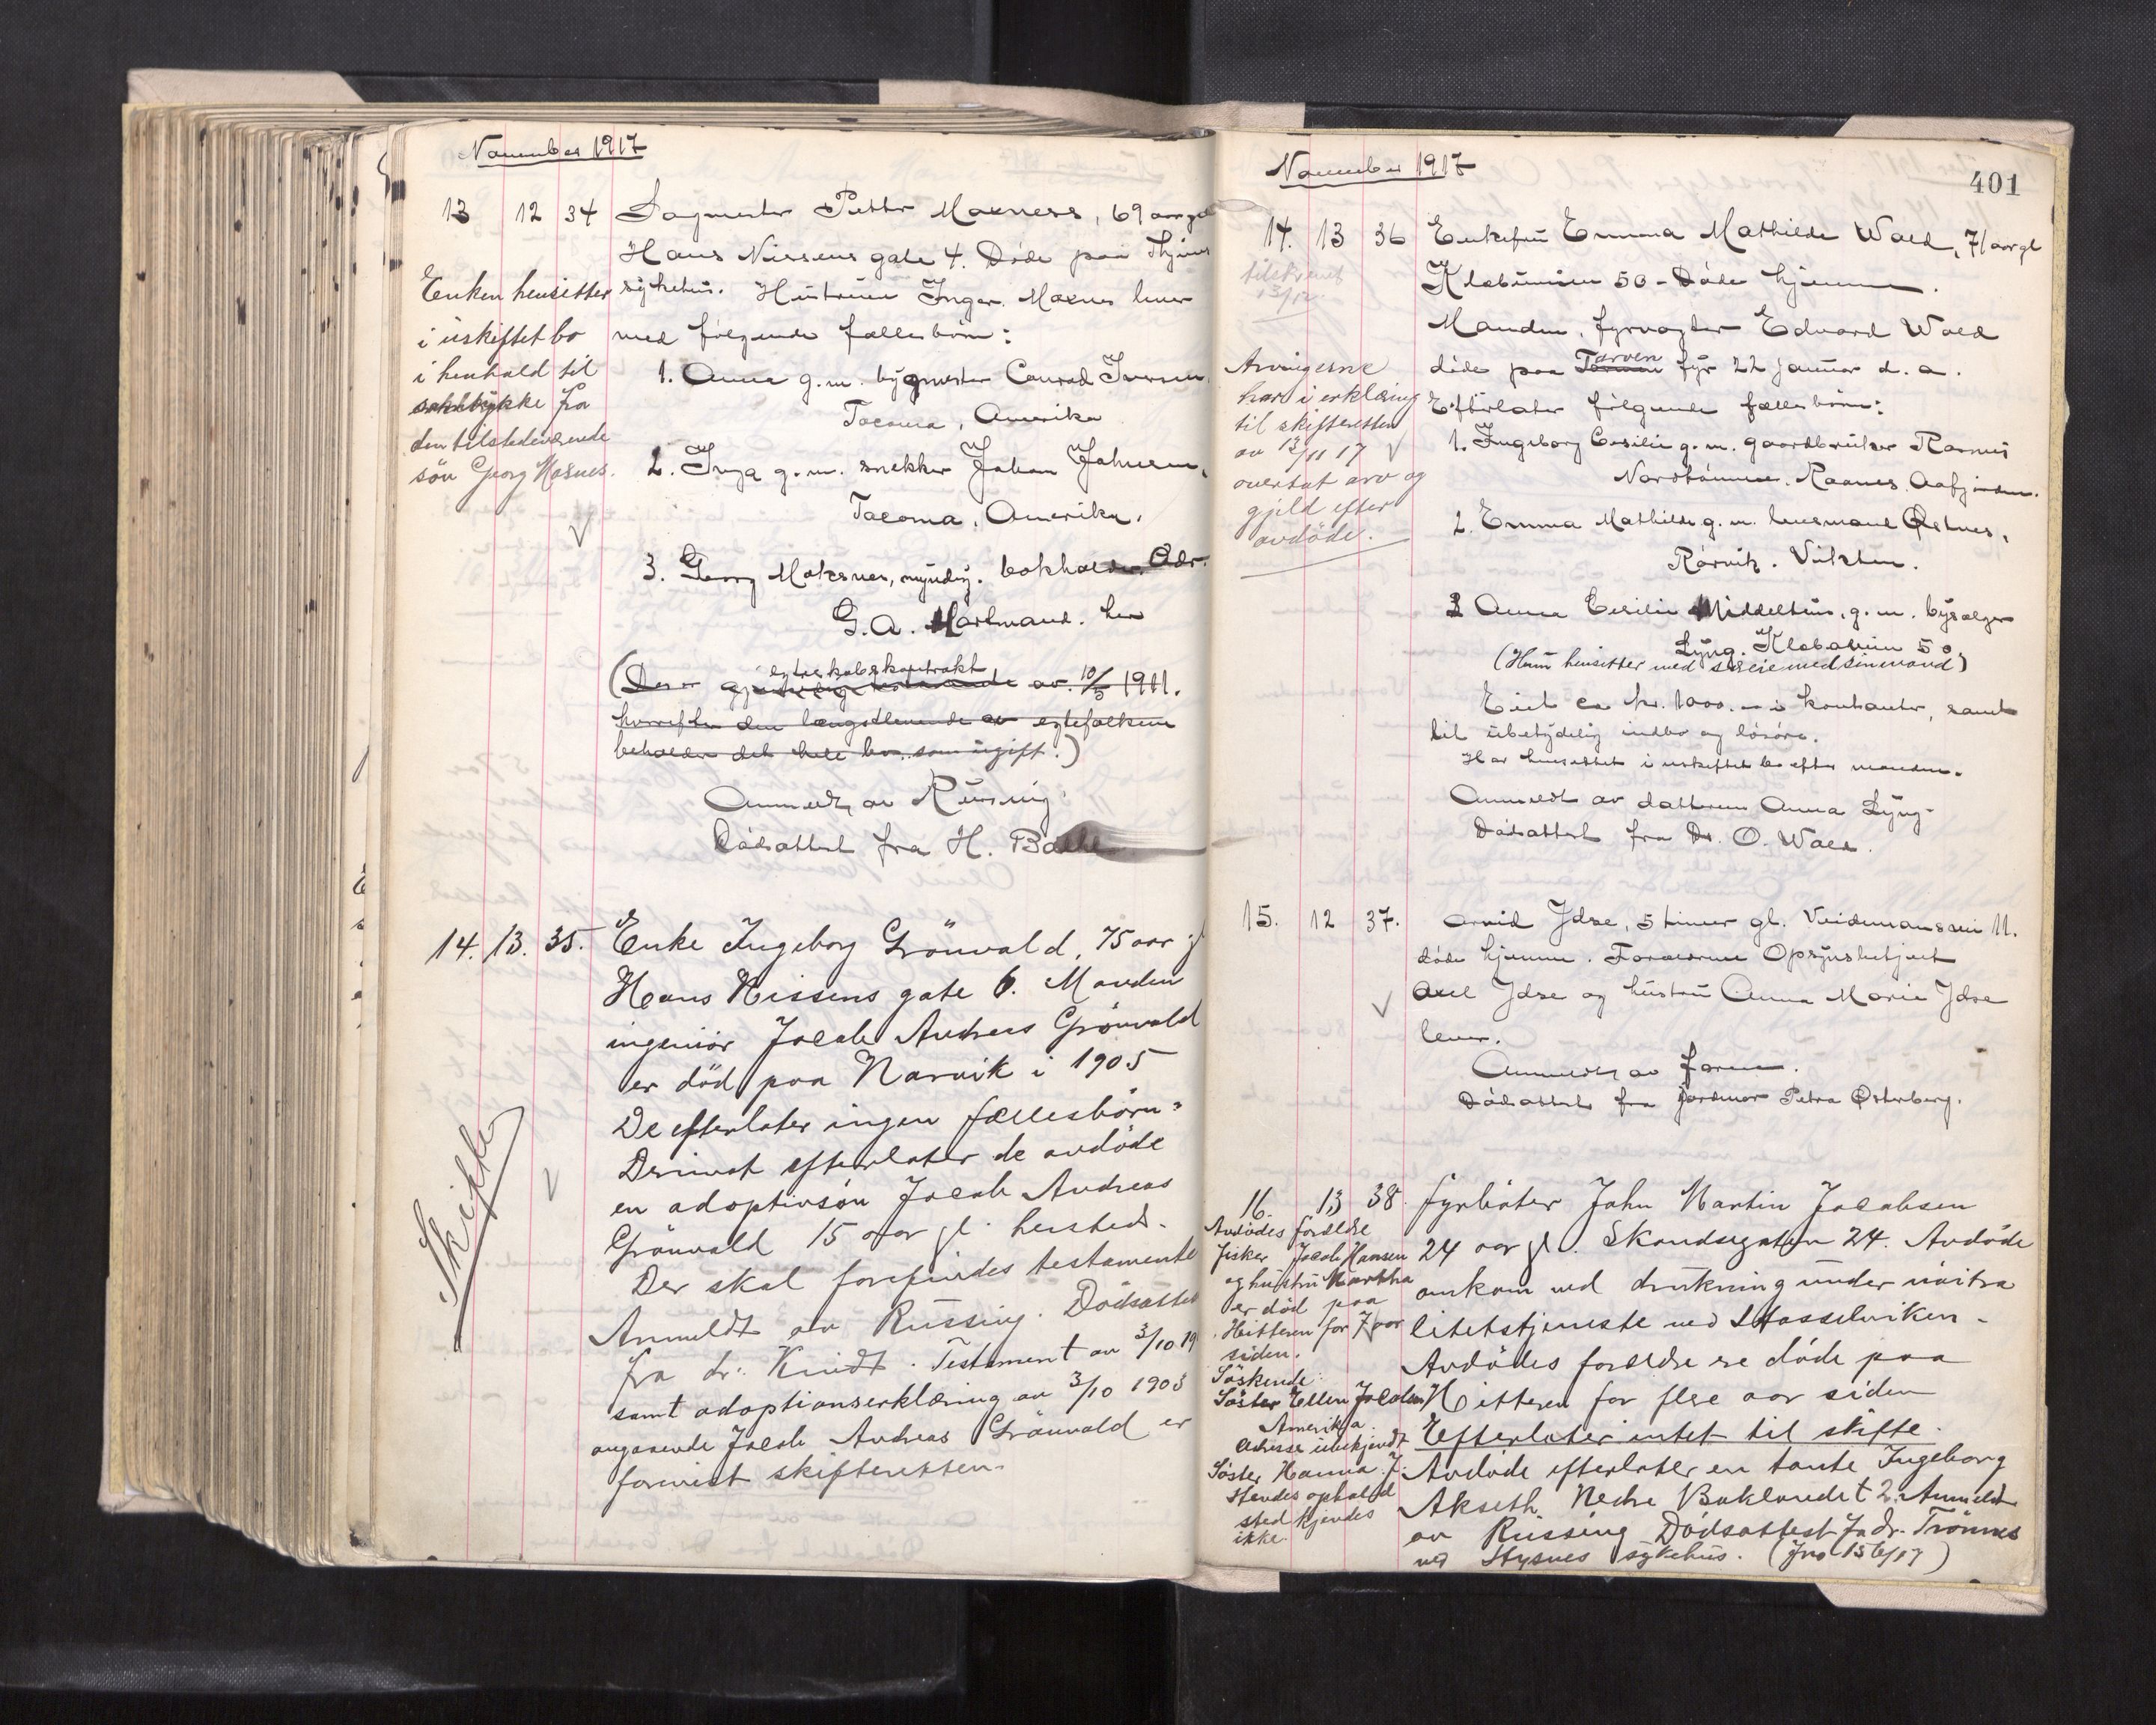 November 1917
13 12 34 Sagmester Petter Moxness, 69 aar gl
Hans Nissens gate 4. Døde paa Thjems
sykehus. Hustruen Inger Moxnes lever
med følgende fællesbörn:
1. Anna g.m. bygmester Conrad Iversen,
Tacoma, Amerika
2. Inga g.m. snekker Johan Johnsen,
Tacoma, Amerika.
3. Georg Moksnes, myndig. bokholder. Adr.
G. A. Hartmand. her
ektepakskontrakt
(Der er gjensidig testamente av 10/5 1911.
hvorefter den længstlevende av egtefolkene
beholder det hele bo som ugift.)
Anmeldt av Rüssing
Dødsattest fra H.
Enken hensitter
i uskiftet bo
i henhold til
samtykke fra
den tilstedeværende
søn Georg Moxnes.
14. 13. 35. Enke Ingeborg Grönvald, 75 aar gl
Hans Nissens gate 6. Manden
ingeniör Jacob Andreas Grönvald
er död paa Narvik i 1905
De efterlater ingen fællesbörn.
Derimot efterlater de avdöde
en adoptivsön Jacob Andreas
Grönvald 15 aar gl. hersteds.
Der skal forefindes testamente
Anmeldt av Rüssing. Dödsattest
fra dr. Kindt. Testament av 3/10 19
samt adoptionserklæring av 3/10 1903
angaaende Jacob Andreas Grönvald er
forevist skifteretten.
Skifte
November 1917
401
14. 13 36 Enkefru Emma Mathilde Wold, 71 aar gl
Klæbuveien 50 - Døde hjemme.
Manden, fyrvogter Edvard Wold
Tarven
døde paa fyr 22 januar d. a.
Efterlater følgende fællesbörn:
1. Ingeborg Cesilie g.m. gaardbruker Rasmus
Nordhammer. Raanes. Aafjorden.
2. Emma Mathilde g.m. Østnes,
Rørvik. Vikten.
3 Anna Cesilie Middelthun, g.m. bysælger
Lyng. Klæbuveien 50.
(Hun hensitter med særeie med sin mand)
Eiet ca kr. 1000.- i kontanter, samt
litt ubetydelig indbo og løsøre.
Har hensittet i uskiftet bo efter manden.
Anmeldt av datteren Anna Lyng.
Dødsattest fra Dr. O. Wold.
tilskrevet
13/12.
Arvingerne
har i erklæring
til skifteretten
av 13/11 17
overtat arv og
gjeld efter
avdöde.
15. 12 37. Arvid Idse, 5 timer gl. Veidemansvei 11.
døde hjemme. Forældrene Opsynsbetjent
Axel Idse og hustru Anna Marie Idse
lever.
Anmeldt av faren.
Dødsattest fra jordmor Petra Østerberg.
16. 13 38. Fyrböter John Martin Jacobsen
24 aar gl. Skandsegaten 24. Avdöde
omkom ved drukning under nöitra
litetstjeneste ved Hasselviken.
Avdödes forældre er döde paa
Hitteren for flere aar siden
Efterlater intet til skifte.
Avdöde efterlater en tante Ingeborg
Akseth Nedre Baklandet 2. Anmeldt
av Rüssing Dödsattest fra dr. Trönnes
ved Stysnes sykehus. (Jno 156/17)
Avdödes forældre
fisker Jacob Hansen
og hustru Martha
er död paa
Hitteren for 7 aar
siden.
Söskende:
Söster Ellen Jacobsen
Amerika.
adresse ubekjendt
Söster Hanna J.
Hendes opholds
sted kjendes
ikke.